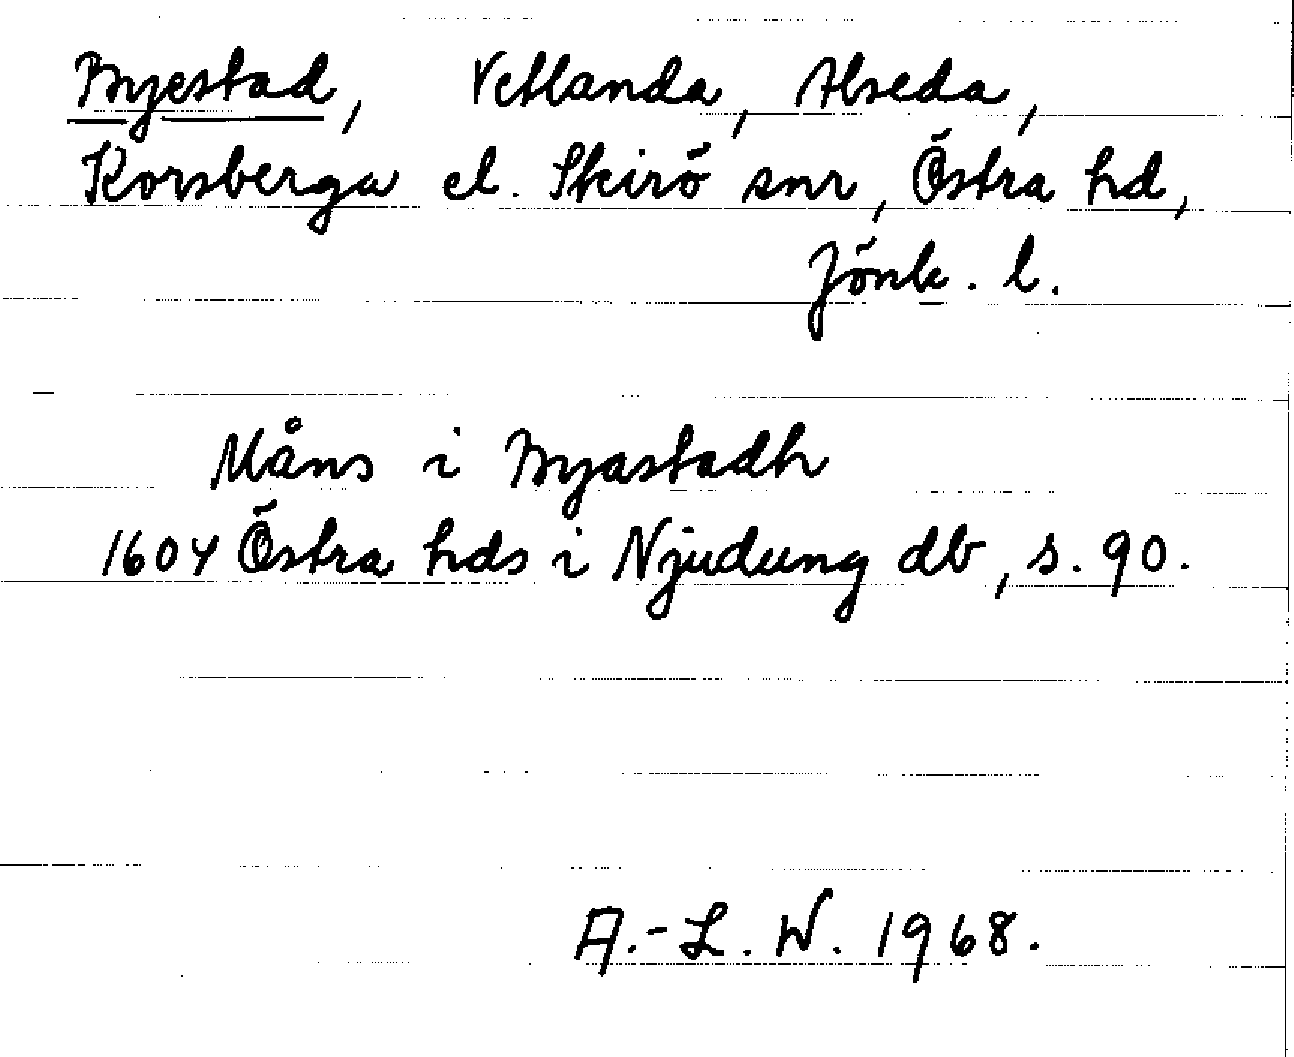 Byestad, Vetlanda, Alseda,
Korsberga el. Skirö snr, Östra hd,
Jönk. l.
Måns i Byastadh
1604 Östra hds i Njudung db, s. 90.
A.-L. W. 1968.